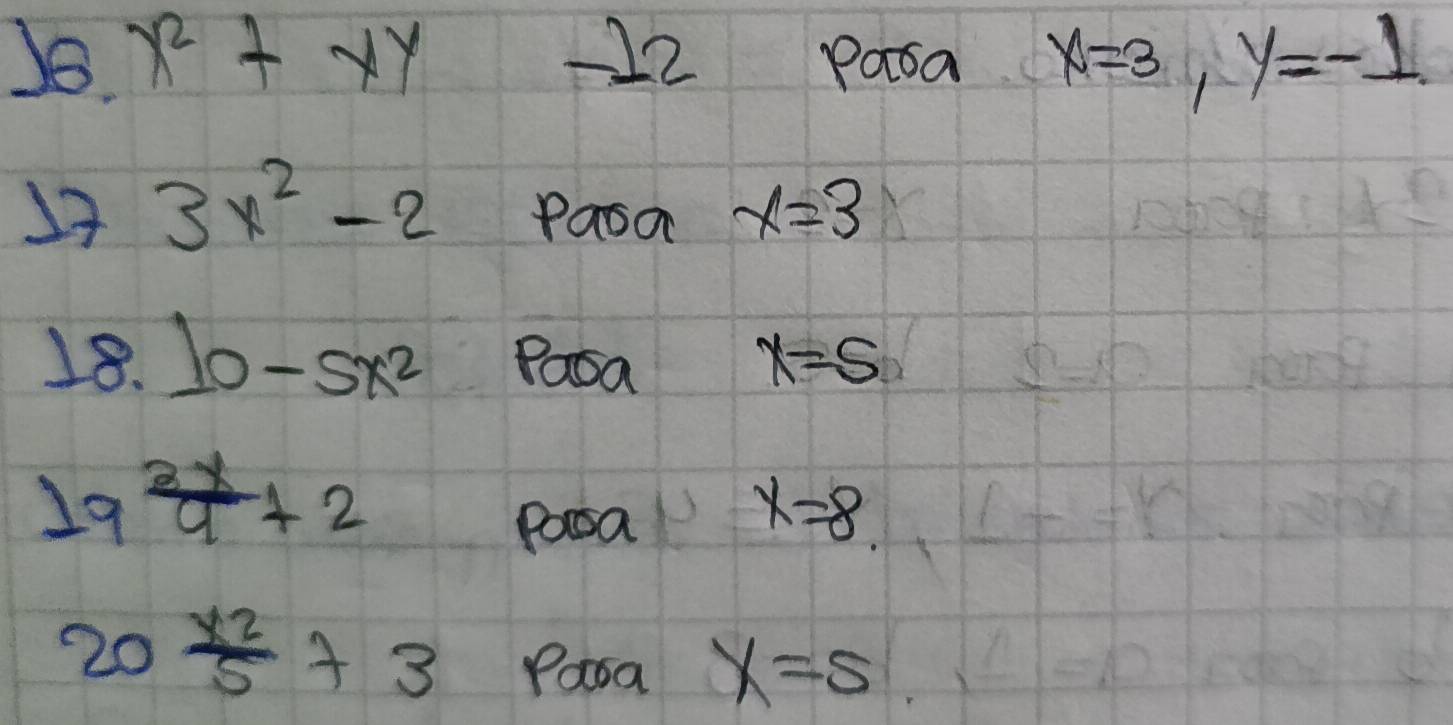 16. x² + xy -12 para x=3, y=-1.
17 3x² - 2 para x=3
18. 10 - 5x² Para x=5
19 3x/4 + 2 para x=8.
20 x2/5 + 3 Para x=5.